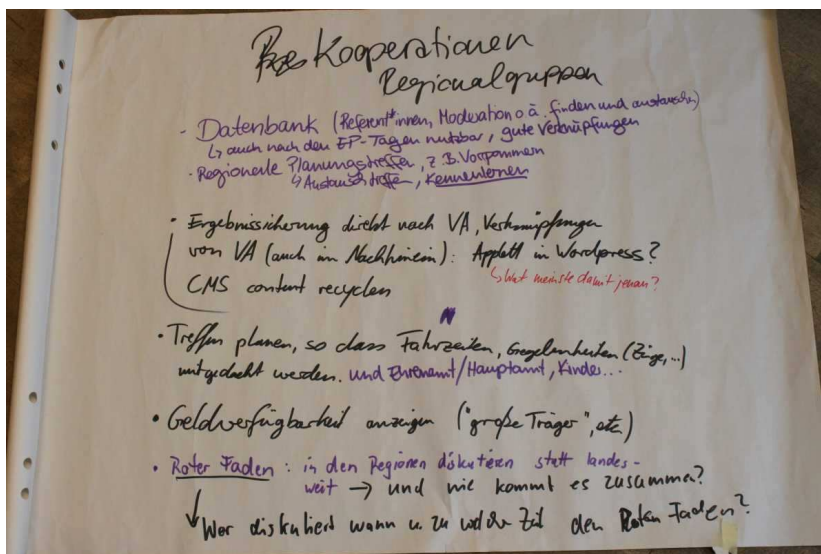 Kooperationen
Regionalgruppen
· Datenbank (Referent*innen, Moderation o.ä. finden und austauschen)
↳ auch nach den EP-Tagen nutzbar, gute Verknüpfungen
· Regionale Planungstreffen, z.B. Vorpommern
↳ Austauschtreffen, Kennenlernen
· Ergebnissicherung direkt nach VA, Verknüpfungen
von VA (auch im Nachhinein): Applett in Wordpress?
CMS content recyclen
↳ Wat meinste damit jenau?
· Treffen planen, so dass Fahrzeiten, Gegebenheiten (Züge,...)
mitgedacht werden. und Ehrenamt/Hauptamt, Kinder...
· Geldverfügbarkeit anzeigen ("große Träger", etc.)
· Roter Faden: in den Regionen diskutieren statt landes-
weit → und wie kommt es zusammen?
↳ Wer diskutiert wann u. zu welcher Zeit den Roten Faden?